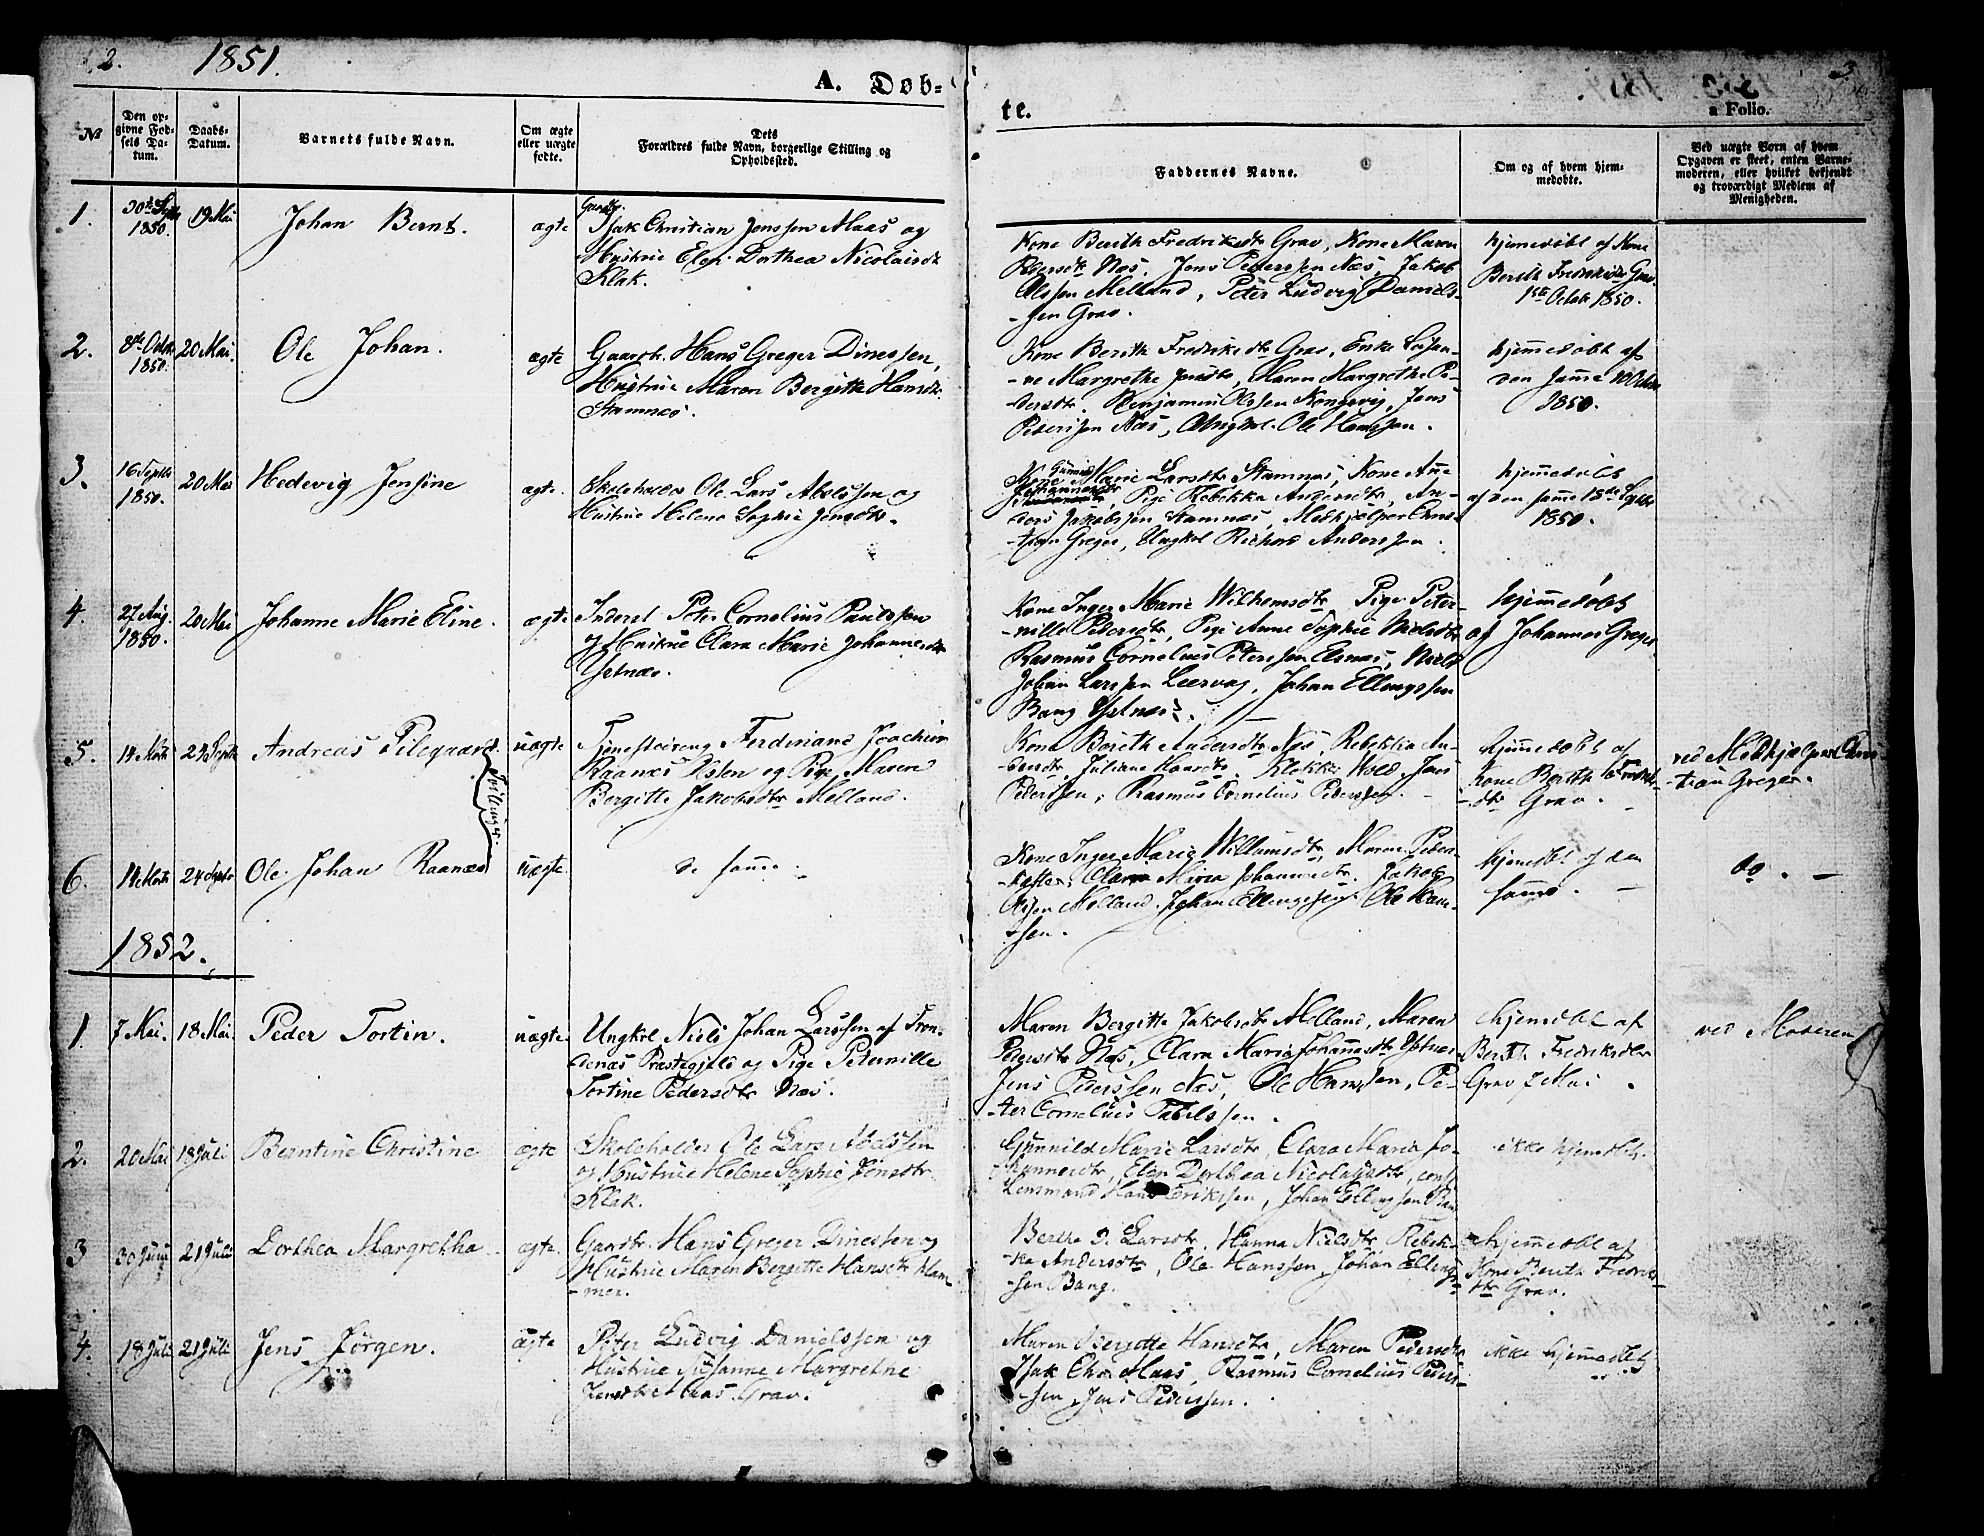 2.
1851.
A. Døb-
te.
3
a Folio.
No
Den op-
givne Fød-
sels Da-
tum.
Daabs-
Datum.
Barnets fulde Navn.
Om ægte
eller uægte
fødte.
Dets
Forældres fulde Navn, borgerlige Stilling og
Opholdssted.
Faddernes Navne.
Om og af hvem hjem-
medøbte.
Ved uægte Børn af hvem
Opgaven er skeet, enten Barne-
moderen, eller hvilket bekjendt
og troværdigt Medlem af
Menigheden.
1.
30te Septbr
1850.
19 Mai
Johan Bernt.
ægte
Gaardbr.
Isak Christian Jenssen Maas og
Hustrue Elen Dorthea Nicolaisdtr
Klak.
Kone Berith Fredriksdtr Grav, Kone Maren
Pedersdtr Næs, Jens Pederssen Næs, Jakob
Olssen Melland, Peter Ludvig Daniels-
-sen Grav.
hjemedøbt af Kone
Berith Fredriksdtr Grav
1ste Octob 1850.
2.
8de Octob
1850.
20 Mai.
Ole Johan.
ægte
Gaardb. Hans Greger Dinessen,
Hustrue Maren Bergitte Hansdtr.
Stamnæs.
Kone Berith Fredriksdtr Grav, Enke Susan-
-ne Margrethe Jensdtr, Maren Margrethe Pe-
dersdtr, Benjamin Olssen Kongsvig, Jens
Pederssen Næs, Ungkel. Ole Hanssen.
hjemmedøbt af
den samme 10 Octobr
1850.
3.
16 Septbr
1850.
20 Mai
Hedevig Jensine
ægte.
Skoleholder Ole Lars Abelssen og
Hustrue Helene Sophie Jensdtr.
Kone Gunnild Marie Larsdtr Stamnæs, Kone Ane
Johannesdtr, Pige Rebekka Andersdtr, An-
ders Jakobssen Stamnæs, Medhjælper Chris-
-tian Greger, Ungkel Richard Anderssen.
hjemmedøbt
af den samme 18de Septbr
1850.
4.
27 Aug.
1850.
20 Mai
Johanne Marie Eline.
ægte
Inderst Peter Cornelius Paulssen
og Hustrue Clara Marie Johannesdtr
Ystnæs.
Kone Inger Marie Wilhemsdtr, Pige Peter-
-nille Pedersdtr, Pige Anne Sophie Nielsdtr
Rasmus Cornelius Peterssen Elsnæs, Niels
Johan Larssen Leervag, Johan Ellingssen
Bang Ystnæs.
hjemmedøbt
af Johannes Greger
5.
14 Marts
24 Septb
Andreas Pilegaard.
Tvillinger.
uægte
Tjenestdreng Ferdinand Joachim
Raanæs Olsen og Pige Maren
Bergitte Jakobsdtr Melland.
Kone Berith Andersdtr Næs, Rebekka An-
dersdtr, Juliane Hansdtr, Klokker Wold, Jens
Pederssen, Rasmus Cornelius Pederssen.
hjemmedøbt af
Kone Berith Fredriks-
-dtr Grav.
ved Medhjælper Chris-
-tian Greger.
6.
14 Marts
24 Septbr
Ole Johan Raanæs
uægte.
de samme
Kone Inger Marie Willumsdtr, Maren Peder-
-datter, Clara Maria Johannesdtr, Jakob
Olssen Melland, Johan Ellingssen, Ole Han-
-ssen.
hjemedbt af den
samme.
do.
1852.
1.
7 Mai.
18 Mai.
Peder Tortin.
uægte.
Ungkel Niels Johan Larssen af Tron-
denæs Præstegjeld og Pige Peternille
Tortine Pedersdtr Næs.
Maren Bergitte Jakobsdtr Melland, Maren
Pedersdtr Næs, Clara Maria Johannesdtr Ystnæs
Jens Pederssen Næs, Ole Hanssen, Pe-
-ter Cornelius Paulssen.
hjemdbt af
Berith Fredriksdtr
Grav 7 Mai
ved Moderen
2.
20 Mai
18 Juli
Berntine Christine
ægte
Skoleholder Ole Lars Abelssen
og Hustrue Helene Sophie Jensdtr
Klak.
Gunnild Marie Larsdtr, Clara Maria Jo-
hannesdtr, Elen Dorthea Nicolaisdtr, const.
Lensmand Hans Erikssen, Johan Ellingssen Ban
ikke hjemdbt.
3
30 Juni
21 Juli
Dorthea Margretha
ægte.
Gaardbr. Hans Greger Dinessen og
Hustrue Maren Bergitte Hansdtr Ham-
-mer.
Berthe D. Larsdtr, Hanna Nielsdtr, Rebek-
-ka Andersdtr, Ole Hanssen, Johan Elling-
-sen Bang.
hjemedbt af
Kone Berith Fredriks-
dtr Grav.
4.
18 Juli
21 Juli
Jens Jørgen.
ægte
Peter Ludvig Danielssen og
Hustrue Susanne Margrethe
Jensdtr Maas Grav.
Maren Bergitte Hansdtr, Maren Pedersdtr
Isak Chr. Maas, Rasmus Cornelius Peders-
-sen, Jens Pederssen.
ikke hjemmedbt